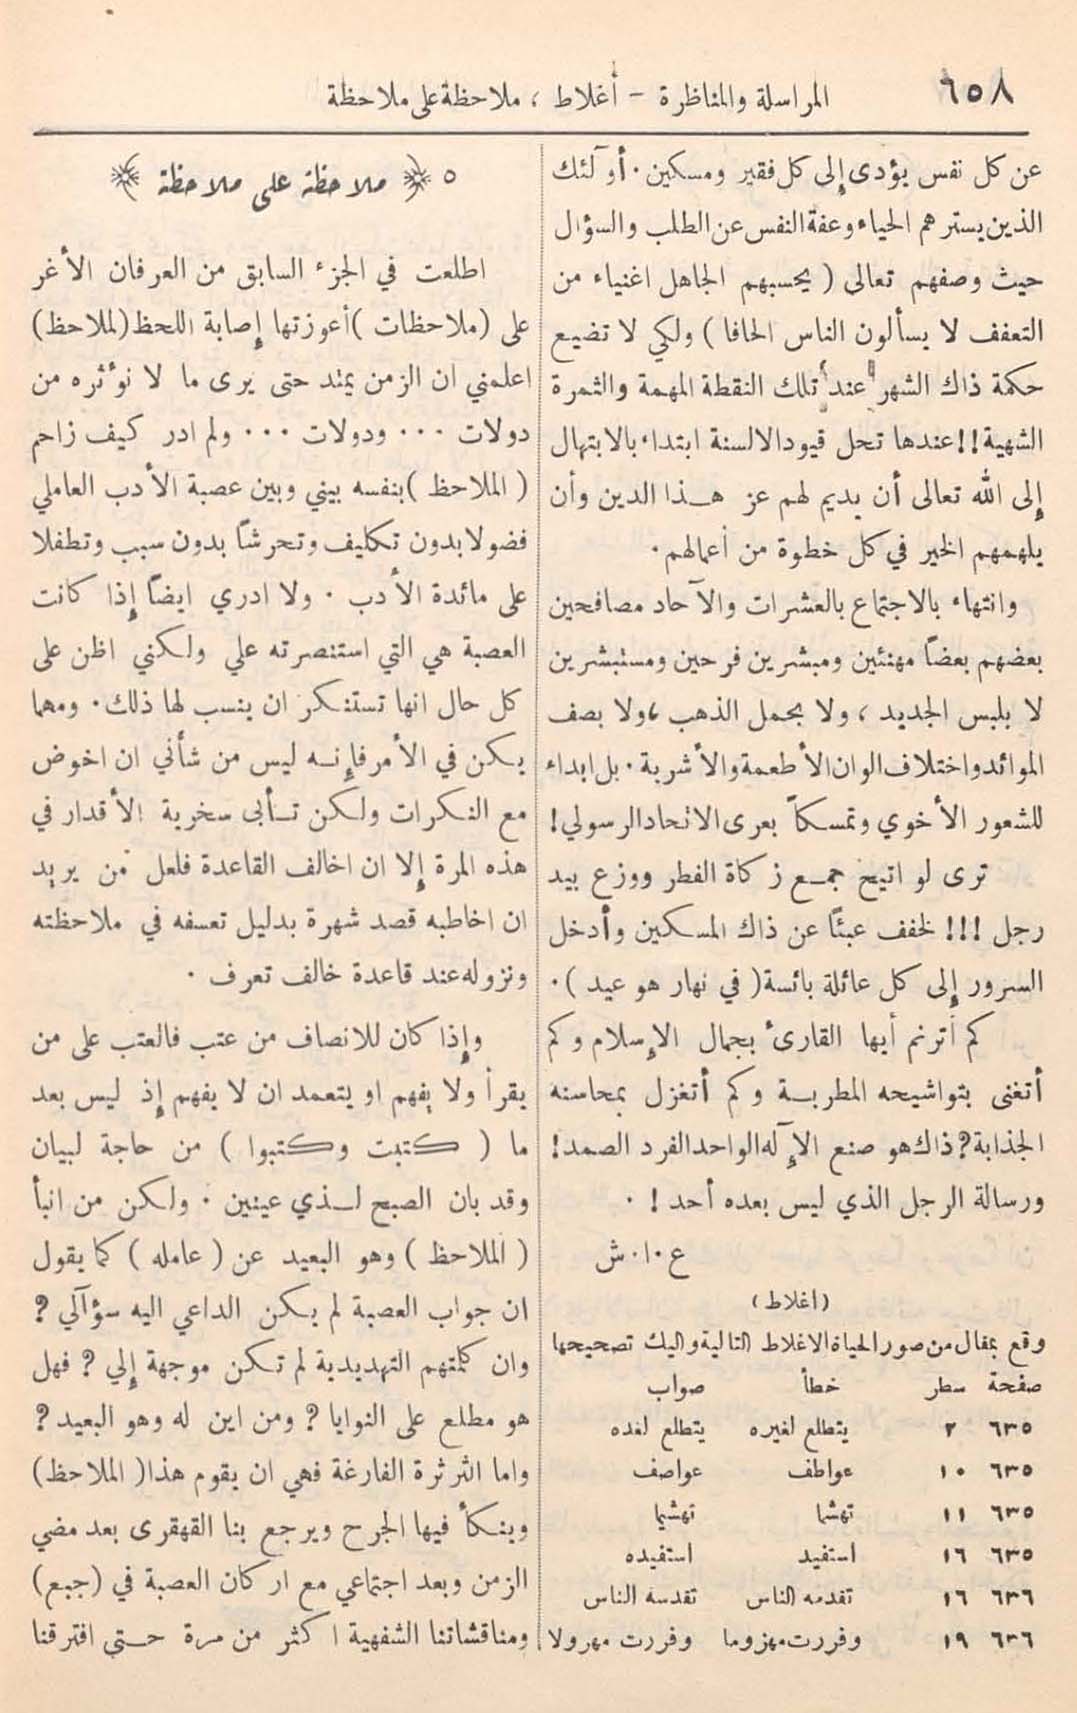 ٦٥٨
المراسلة والمناظرة – أغلاط ، ملاحظة على ملاحظة
عن كل نفس يؤدى إلى كل فقير ومسكين . أولئك
الذين يسترهم الحياء وعفة النفس عن الطلب والسؤال
حيث وصفهم تعالى ( يحسبهم الجاهل اغنياء من
التعفف لا يسألون الناس الحافا ) ولكي لا تضيع
حكمة ذاك الشهر عند تلك النقطة المهمة والثمرة
الشهية !! عندها تحل قيود الالسنة ابتداء بالابتهال
إلى الله تعالى أن يديم لهم عز هـذا الدين وأن
يلهمهم الخير في كل خطوة من أعمالهم .
وانتهاء بالاجتماع بالعشرات والآحاد مصافحين
بعضهم بعضاً مهنئين ومبشرين فرحين ومستبشرين
لا بلبس الجديد ، ولا بحمل الذهب ، ولا بصف
الموائد واختلاف الوان الأطعمة والأشربة . بل ابداء
للشعور الأخوي وتمسكاً بعرى الاتحاد الرسولي !
ترى لو اتيح جمـع زكاة الفطر ووزع بيد
رجل !!! لخفف عبئاً عن ذاك المسكين وأدخل
السرور إلى كل عائلة بائسة ( في نهار هو عيد ) .
كم أترنم أيها القارئ بجمال الإسلام وكم
أتغنى بتواشيحه المطربـة وكم أتغزل بمحاسنه
الجذابة ? ذاك هو صنع الإله الواحد الفرد الصمد !
ورسالة الرجل الذي ليس بعده أحد ! .
ع . ا . ش
( أغلاط )
وقع بمقال من صور الحياة الاغلاط التالية واليك تصحيحها
صفحة سطر خطأ صواب
٦٣٥ ٢ يتطلع لغيره يتطلع لغده
٦٣٥ ١٠ عواطف عواصف
٦٣٥ ١١ تهشما تهشيما
٦٣٥ ١٦ استفيد استفيده
٦٣٦ ١٦ تقدمه الناس تقدسه الناس
٦٣٦ ١٩ وفررت مهزوما وفررت مهرولا
٥ ملاحظة على ملاحظة
اطلعت في الجزء السابق من العرفان الأغر
على ( ملاحظات ) أعوزتها إصابة اللحظ ( لملاحظ )
اعلمني ان الزمن يمتد حتى يرى ما لا نوثره من
دولات ... ودولات ... ولم ادر كيف زاحم
( الملاحظ ) بنفسه بيني وبين عصبة الأدب العاملي
فضولا بدون تكليف وتحرشاً بدون سبب وتطفلا
على مائدة الأدب . ولا ادري ايضاً إذا كانت
العصبة هي التي استنصرته علي ولكني اظن على
كل حال انها تستنكر ان ينسب لها ذلك . ومهما
يكن في الأمر فإنـه ليس من شأني ان اخوض
مع النكرات ولكن تـأبى سخرية الأقدار في
هذه المرة إلا ان اخالف القاعدة فلعل من يريد
ان اخاطبه قصد شهرة بدليل تعسفه في ملاحظته
ونزوله عند قاعدة خالف تعرف .
وإذا كان للانصاف من عتب فالعتب على من
يقرأ ولا يفهم او يتعمد ان لا يفهم إذ ليس بعد
ما ( كتبت وكتبوا ) من حاجة لبيان
وقد بان الصبح لـذي عينين . ولكن من انبأ
( الملاحظ ) وهو البعيد عن ( عامله ) كما يقول
ان جواب العصبة لم يكن الداعي اليه سؤآلي ?
وان كلمتهم التهديدية لم تكن موجهة إلي ? فهل
هو مطلع على النوايا ? ومن اين له وهو البعيد ?
واما الثرثرة الفارغة فهي ان يقوم هذا ( الملاحظ )
وينكأ فيها الجرح ويرجع بنا القهقرى بعد مضي
الزمن وبعد اجتماعي مع اركان العصبة في ( جبع )
ومناقشاتنا الشفهية اكثر من مرة حـتى افترقنا